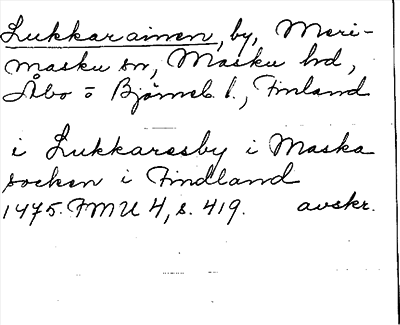 Lukkarainen, by, Meri-
masku sn, Masku hd,
Åbo o Björneb. l., Finland
i Lukkaresby i Maska
socken i Findland
1475. FMU 4, s. 419. avskr.